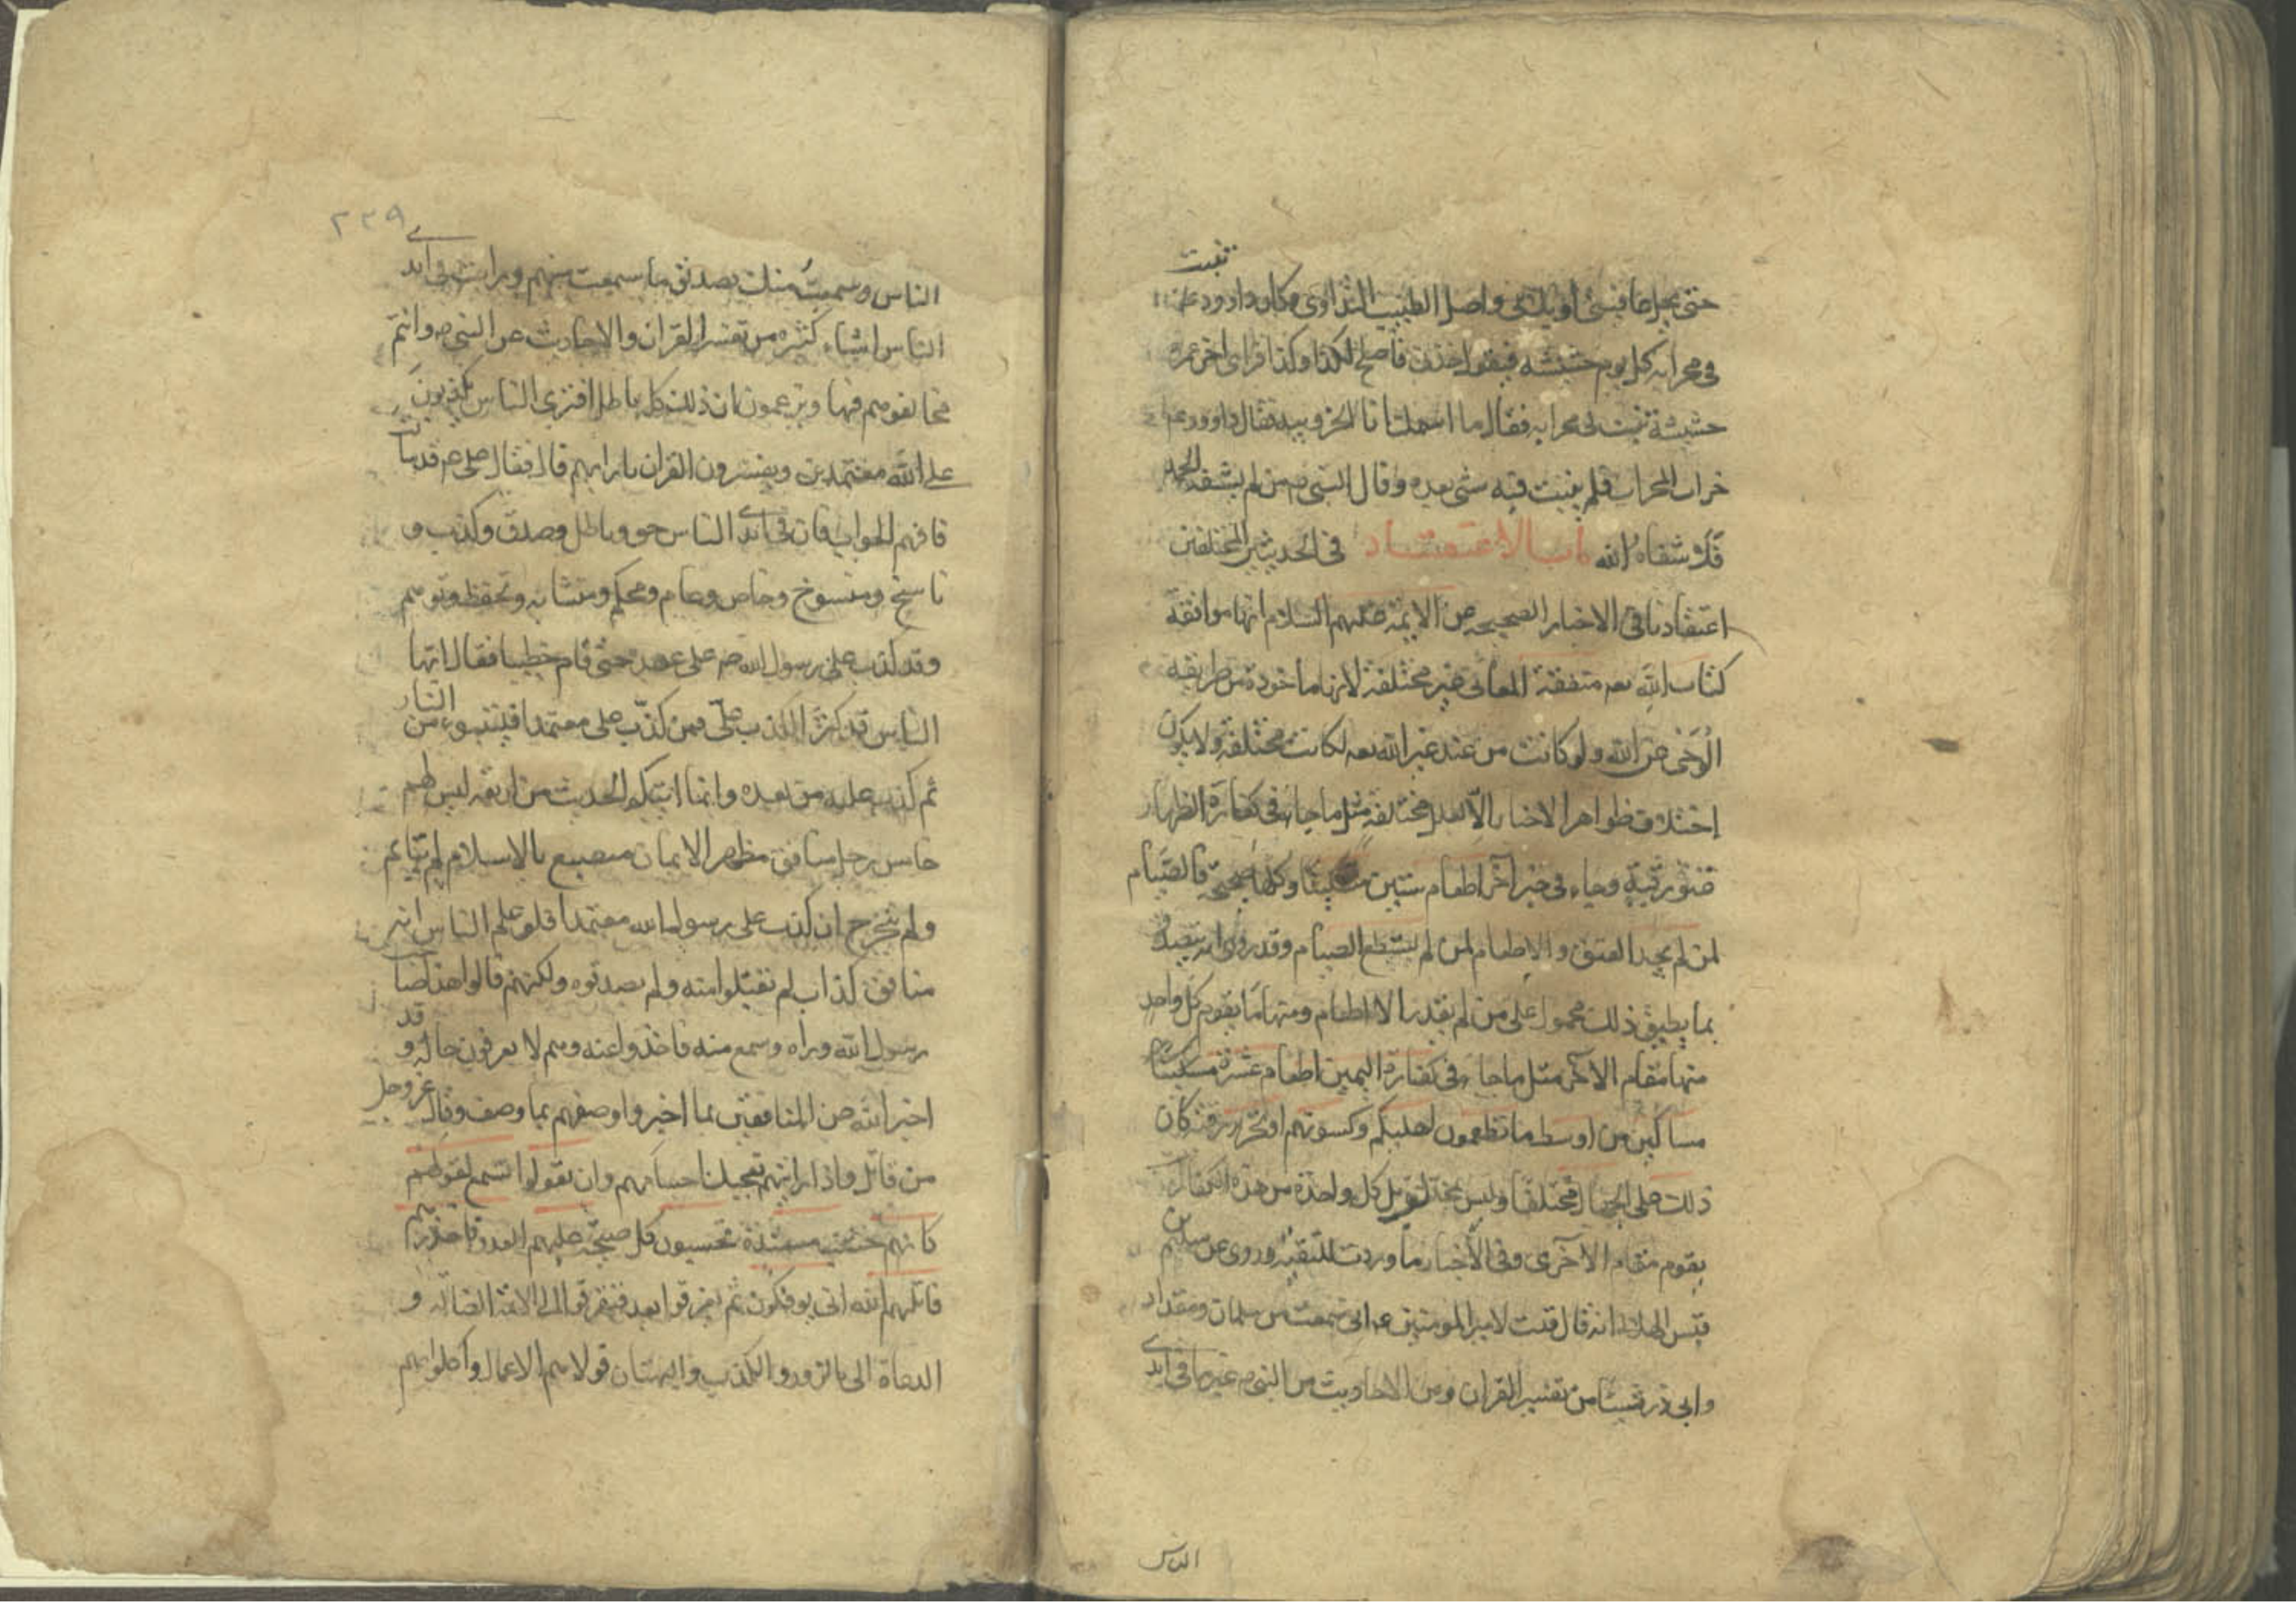 حتى يجعل عافيتي او يشفي واصل الطبيب التداوي وكان داوود عم تنبت
في محرابه كل يوم حشيشه فيقول خذني فاصلح لكذا وكذا فراى اخر عمره
حشيشة تنبت في محرابه فقال ما اسمك انا الخروبيه فقال داوود عم
خراب المحراب فلم ينبت فيه شي بعده وقال النبي ص من لم يشفه الحمد
فلا شفاهُ الله باب الاعتقاد في الحديثين المختلفين
اعتقادنا في الاخبار الصحيحه عن الايمه عليهم السلام انها موافقة
كتاب الله تعه متفقة المعاني غير مختلفة لانها ماخوذة من طريقه
الوحي عن الله ولو كانت من عند غير الله تعه لكانت مختلفة ولا يكون
اختلاف ظواهر الاخبار الا لعلل مختلفة مثل ما جاء في كفارة الظهار
عتق رقبة وجاء في خبر آخر اطعام ستين مسكينا وكلها صحيحة فالصيام
لمن لم يجد العتق والاطعام لمن لم يستطع الصيام وقد روى انه يتصدق
بما يطيق ذلك محمول على من لم يقدر الاطعام ومنها ما يقوم كل واحد
منها مقام الآخر مثل ما جاء في كفارة اليمين اطعام عشرة
مساكين من اوسط ما تطعمون اهليكم وكسوتهم او تحرير رقبة كان
ذلك على الجهال مختلفا وليس بمختلف بل كل واحدة من هذه الكفارات
يقوم مقام الآخرى وفي الأخبار ما وردت للتقيه وروى عن سليم بن
قيس الهلالي انه قال قلت لامير المومنين عم اني سمعت من سلمان ومقداد
وابي ذر شيئا من تفسير القران ومن الاحاديث من النبي ص غير ما في ايدى
الناس
٢٢٩
الناس وسمعتُ منك بصدق ما سمعت منهم ورايت في ايدى
الناس اشياء كثيره من تفسير القران والاحاديث عن النبي ص وانتم
تخالفوهم فيها وتزعمون ان ذلك كل باطل افترى الناس يكذبون
على الله معتمدين ويفسرون القران بارايهم قال فقال علي عم قد سالت
فافهم الجواب فان في ايدى الناس حق وباطل وصدق وكذب و
ناسخ ومنسوخ وخاص وعام ومحكم ومتشابه وتحفظ وتوهم
وقد كذب على رسول الله ص على عهده حتى قام خطيبا فقال ايها
الناس قد كثر الكذب عليّ فمن كذّب على معتمدا فليتبوء من النار
ثم كذب عليه من بعده وانما اتيكم الحديث من اربعه ليس لهم
خامس رجل منافق مظهر الايمان متصنع بالاسلام لم يتاثم
ولم يتحرج ان كذب على رسول الله معتمدا فلو علم الناس انه
منافق كذاب لم تقبلوا منه ولم يصدقوه ولكنهم قالوا هذا صاحب
رسول الله وراه وسمع منه فاخذوا عنه وهم لا يعرفون حاله و قد
اخبر الله عن المنافقين بما اخبر واوصفهم بما وصف وقال عز وجل
من قائل واذا رايتهم تعجبك اجسامهم وان يقولوا تسمع لقولهم
كانهم خشب مسنّدة تحسبون كل صيحة عليهم العدو فاحذرهم
قاتلهم الله اني يوفكون ثم تفرقوا بعده فتفرقوا الى الائمة الضالّه و
الدعاة الى بالزور والكذب والبهتان فولاهم الاعمال واكلوا بهم